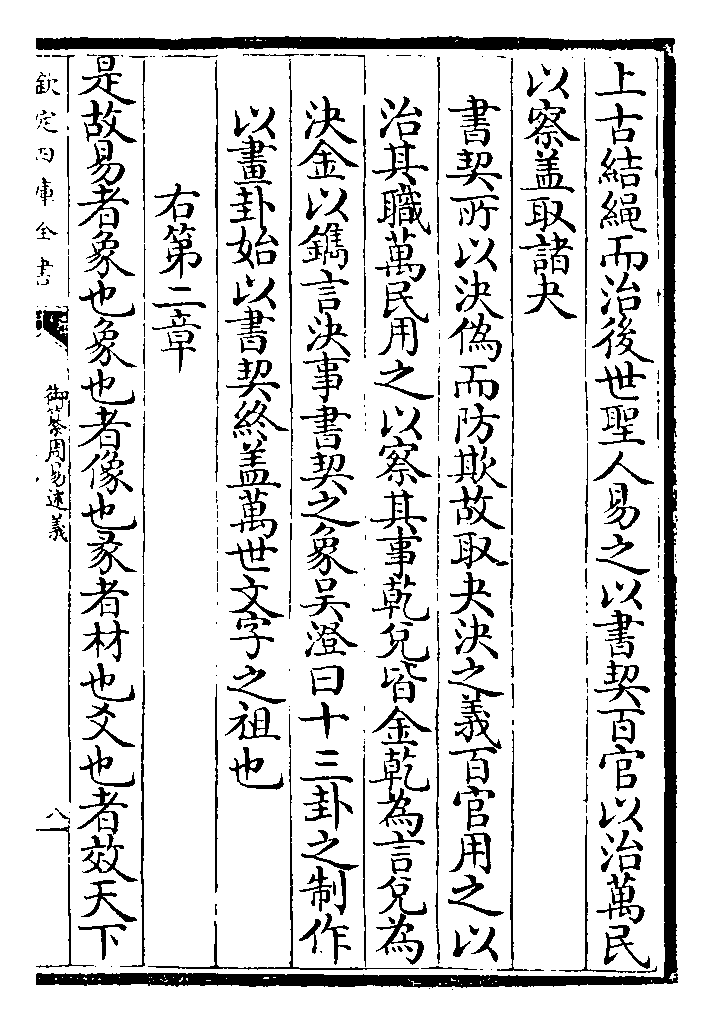 上古結繩而治後世聖人易之以書契百官以治萬民
以察盖取諸夬
書契所以決偽而防欺故取夬決之義百官用之以
治其職萬民用之以察其事乾兌皆金乾為言兌為
決金以鐫言決事書契之象吴澄曰十三卦之制作
以畫卦始以書契終盖萬世文字之祖也
右第二章
是故易者象也象也者像也彖者材也爻也者效天下
欽定四庫全書
御纂周易述義
八